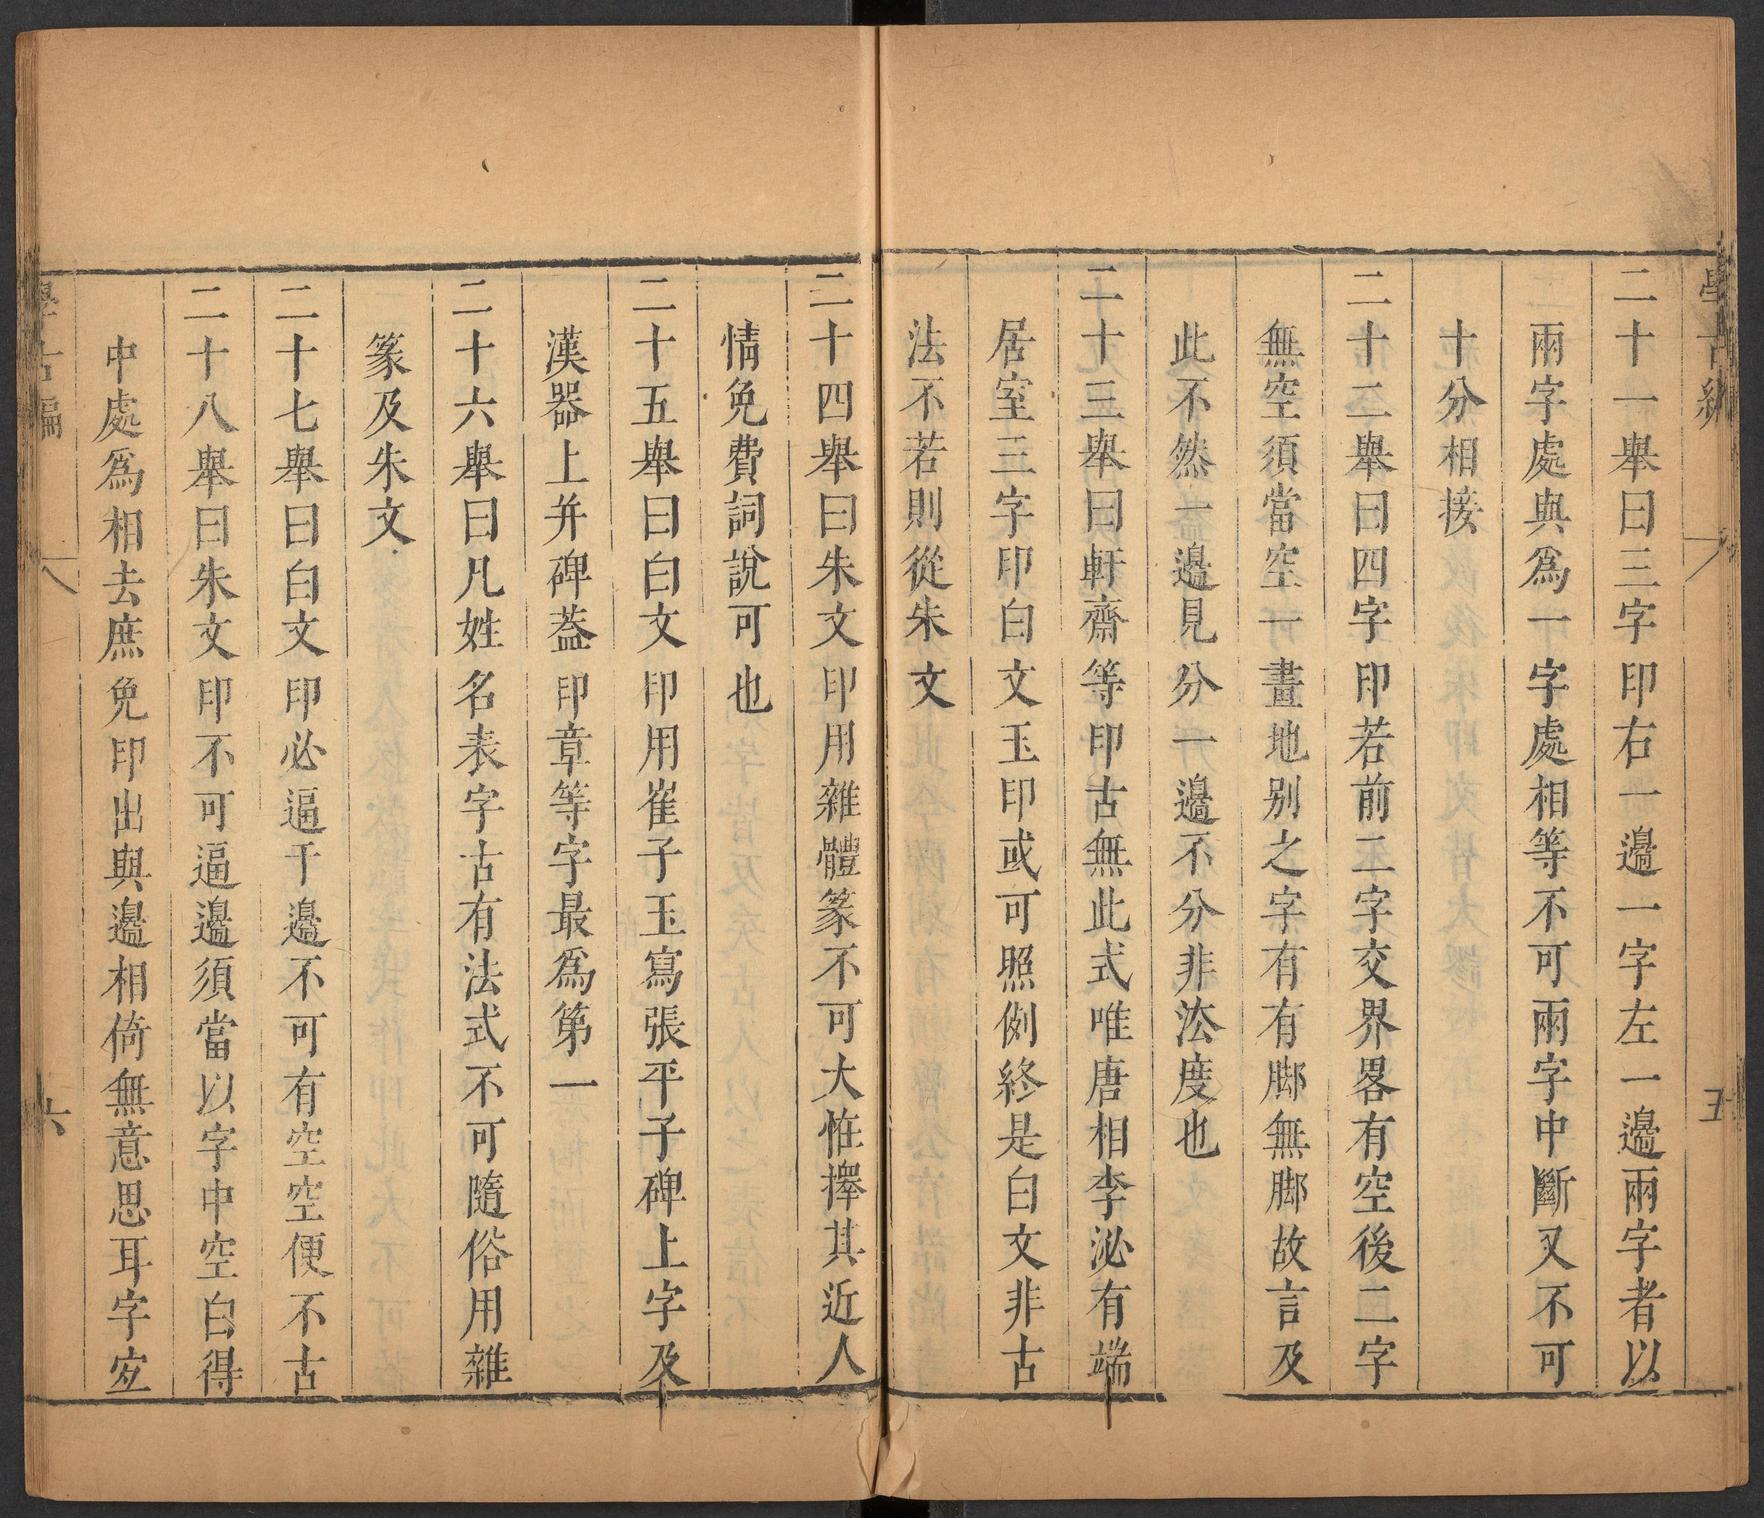 學古編
五
二十一舉曰三字印右一邊一字左一邊兩字者以
兩字處與爲一字處相等不可兩字中斷又不可
十分相接
二十二舉曰四字印若前二字交界畧有空後二字
無空須當空一畫地别之字有有脚無脚故言及
此不然一邊見分一邊不分非法度也
二十三舉曰軒齋等印古無此式唯唐相李泌有端
居室三字印白文玉印或可照例終是白文非古
法不若則從朱文
二十四舉曰朱文印用雜體篆不可大恠擇其近人
情免費詞說可也
二十五舉曰白文印用崔子玉寫張平子碑上字及
漢器上并碑蓋印章等字最爲第一
二十六舉曰凡姓名表字古有法式不可隨俗用雜
篆及朱文
二十七舉曰白文印必逼于邊不可有空空便不古
二十八舉曰朱文印不可逼邊須當以字中空白得
中處爲相去庶免印出與邊相倚無意思耳字宐
學古編
六